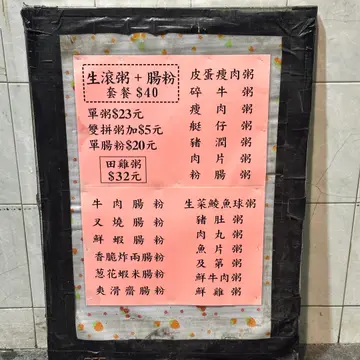 生滾粥+腸粉
套餐 $40
單粥$23元
雙拼粥加$5元
單腸粉$20元
田雞粥
$32元
皮蛋瘦肉粥
碎牛粥
瘦肉粥
艇仔粥
豬潤粥
肉片粥
粉腸粥
牛肉腸粉
叉燒腸粉
鮮蝦腸粉
香脆炸兩腸粉
蔥花蝦米腸粉
爽滑齋腸粉
生菜鯪魚球粥
豬肚粥
肉丸粥
魚片粥
及第粥
鮮牛肉粥
鮮雞粥